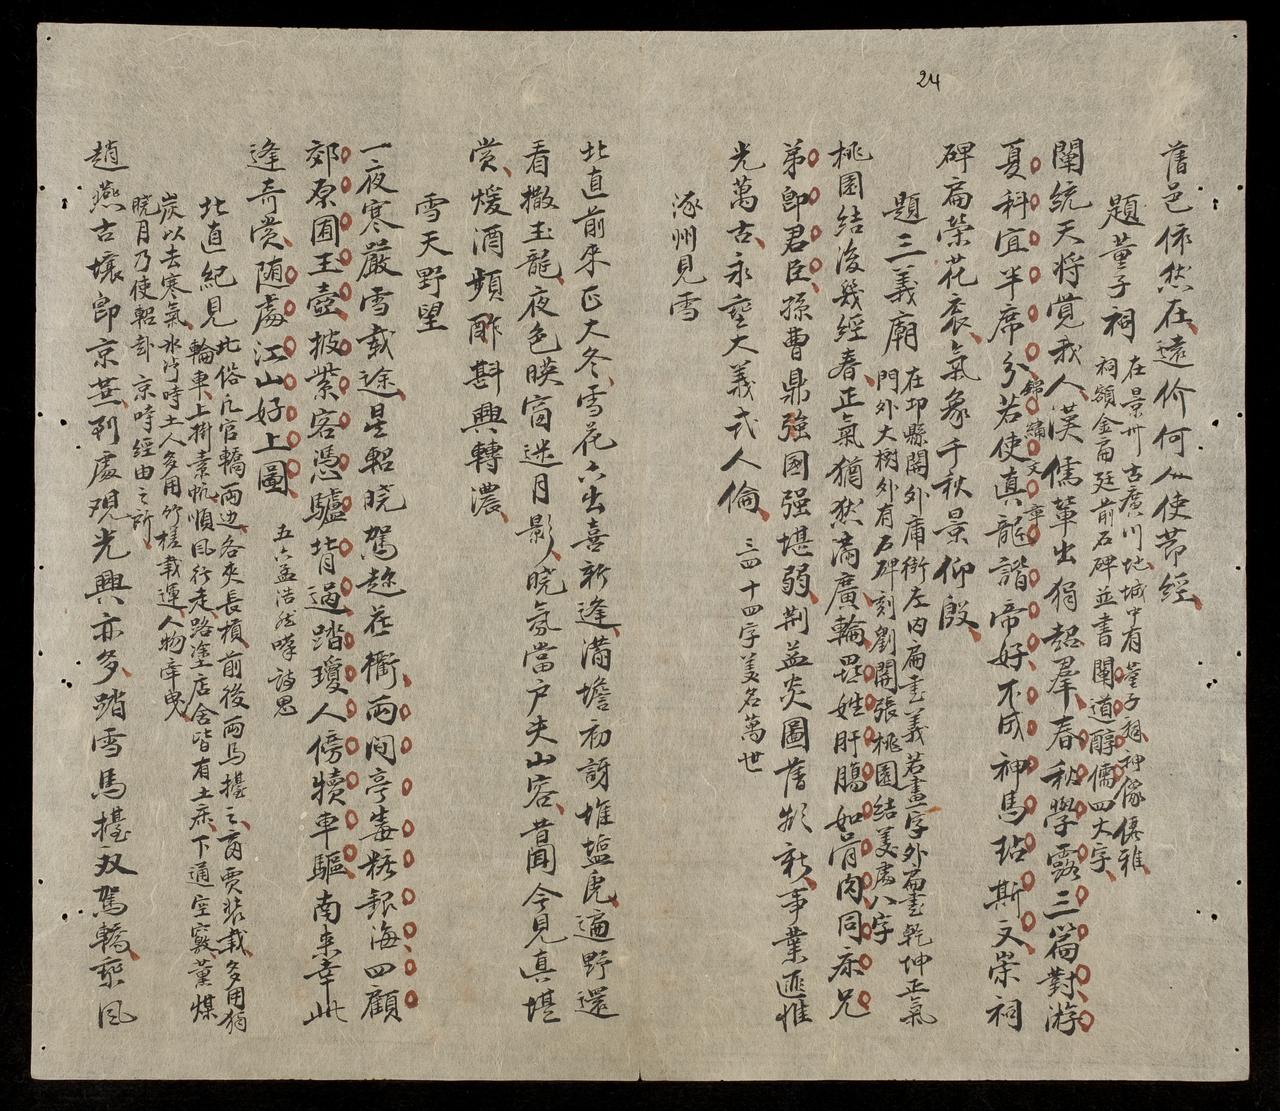 24
舊邑依然在遠价何人使莭經
題董子祠 在景州古廣川地城中有董子祠神像儒雅
祠額金扁廷前石碑並書闡道醇儒四大字
闡統天将覚我人漢儒輩出獨超羣春秋學露三篇對游
夏科宜半席分若使真龍諧帝好不成神馬玷斯文崇祠
錦繡文章
碑扁榮花衮氣象千秋景仰殷
題三義廟 在卭縣閣外庸衝左内扁畫義若畫一字外扁書乾坤正氣
門外大樹外有石碑刻劉關張桃園結義處八字
桃園結後幾經春正氣猶狀滿廣輪異姓肝膓如骨肉同床兄
弟卽君臣孫曹鼎強國强堪弱荆益炎圖舊頻新事業匪惟
光萬古永垂大義弍人倫 三四十四字美名萬世
涿州見雪
北直前来正大冬雪花六出喜新逢滿墻初訝堆塩虎遍野還
看撒玉龍夜色暎窗迷月影晓氛當户失山容昔聞今見真堪
赏煖酒頻酢斟興轉濃
雪天野望
一夜寒嚴雪载途星軺晓駕趂莊衢兩间亭毒糚銀海四顧
郊原囿玉壺披紫客憑驢背過踏瓊人傍犢車驅南来幸此
逢竒赏随處江山好上圖 五六孟浩然嗲詩思
北直紀見 北俗凢官轎两边各夾長槓前後两马擡之商賈装载多用獨
輪車上掛素帆順風行走路塗店舍皆有土床下通空竅薫煤
炭以去寒氣氷泞時土人多用竹槎载運人物牽曳
晓月乃使軺卦京時經由之所
趙燕古壤卽京莊列處观光興亦多踏雪馬擡双駕轎乘风